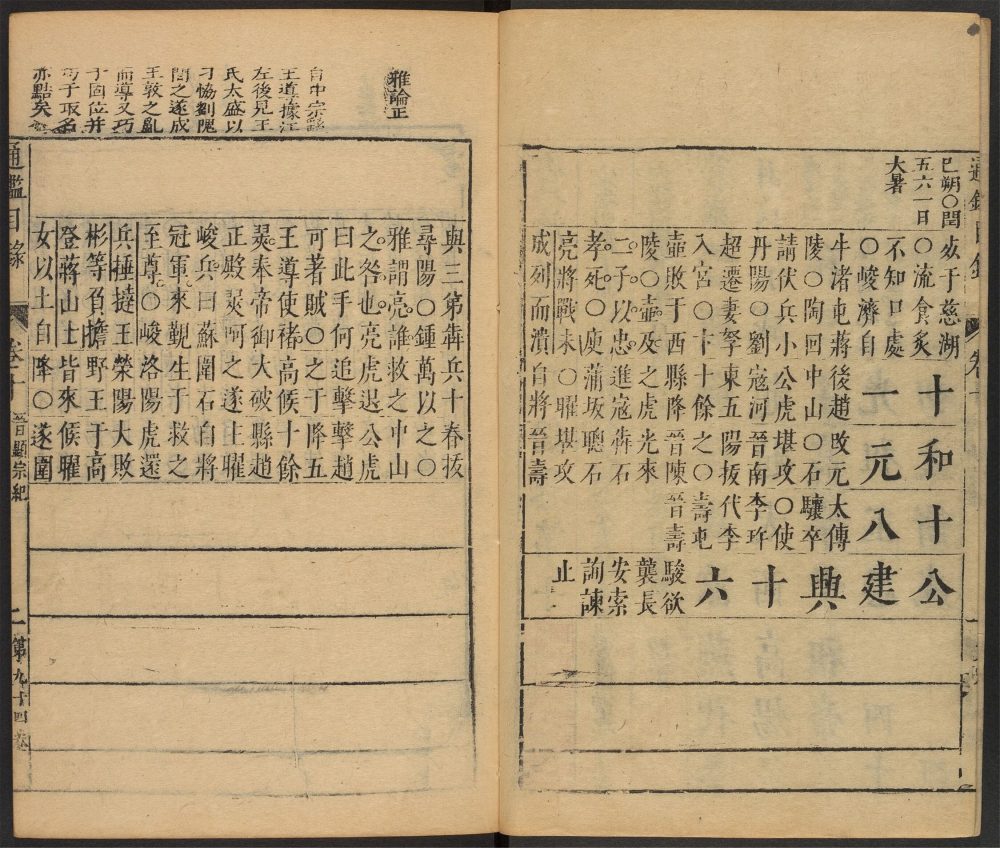 巳朔〇閏
五六一日
大暑
妖于慈湖十和十公
〇流食炙
不知口處一元八建
〇峻濟自
牛渚屯蔣後趙攻元太傅
陵〇陶回中山〇石驤卒興
請伏兵小公虎堪攻〇使
丹陽〇劉寇河晉南李玝十
超遷妻孥東五陽拔代李
入宮〇〇十餘之〇壽屯六
壼敗于西縣降晉陳晉壽駿欲
陵〇壼及之虎光來襲長
二子以忠進寇犇石安索
孝死〇庾蒲坂聰石詢諫
亮將戰未〇曜堪攻止
成列而潰自將晉壽
雅論正
自中宗
王道據江
左後見王
氏太盛以
刁協劉隗
間之遂成
王敦之亂
而導又巧
于固位并
丐子取名
亦黠矣
與三第犇兵十春拔
尋陽〇鍾萬以之〇
雅謂亮誰救之中山
之咎也亮虎退公虎
曰此手何追擊擊趙
可著賊〇之于降五
王導使褚高候十餘
翜奉帝御大破縣趙
正殿翜呵之遂主曜
峻兵曰蘇圍石自將
冠軍來覲生于救之
至尊〇峻洛陽虎還
兵捶撻王滎陽大敗
彬等負擔野王于高
登蔣山土皆來候曜
女以土自降〇遂圍
通鑑目錄 卷十 晉顯宗紀 二 第九十四卷